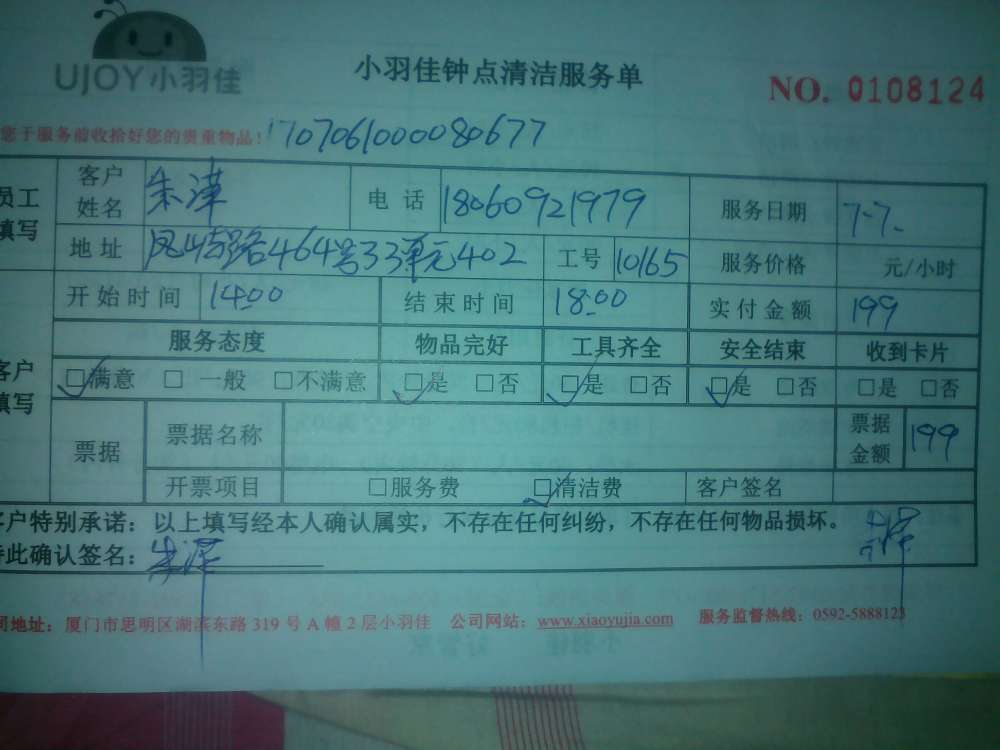 UJOY小羽佳
小羽佳钟点清洁服务单
NO. 0108124
您于服务前收拾好您的贵重物品!
1707061000080677
员工填写
客户姓名 朱 电话 18060921979 服务日期 7-7.
地址 凤屿路464号33单元402 工号 10165 服务价格 元/小时
开始时间 14:00 结束时间 18:00 实付金额 199
客户填写
服务态度 物品完好 工具齐全 安全结束 收到卡片
☑满意 □一般 □不满意 ☑是 □否 ☑是 □否 ☑是 □否 □是 □否
票据 票据名称 票据金额 199
开票项目 □服务费 ☑清洁费 客户签名
客户特别承诺:以上填写经本人确认属实,不存在任何纠纷,不存在任何物品损坏。
此确认签名:朱
司地址:厦门市思明区湖滨东路 319 号 A 幢 2 层小羽佳 公司网站:www.xiaoyujia.com 服务监督热线:0592-5888123